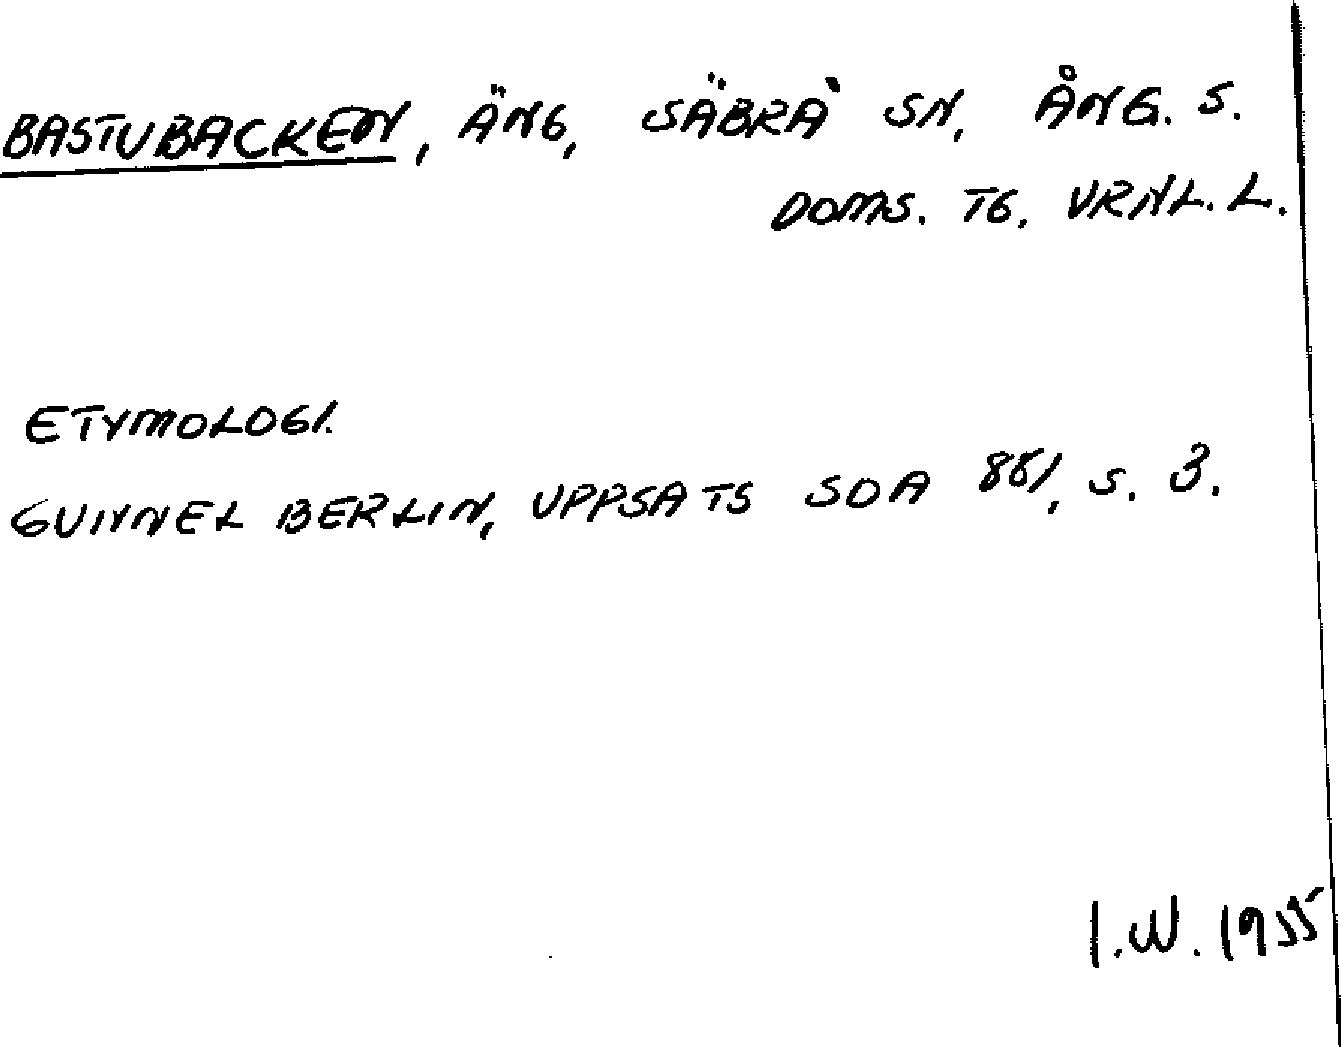 BASTUBACKEN, ÄNG, SÄBRÅ SN, ÅNG. S.
DOMS. TG, VRNL. L.
ETYMOLOGI.
GUNNEL BERLIN, UPPSATS SOA 881, S. 3.
I.W. 1955